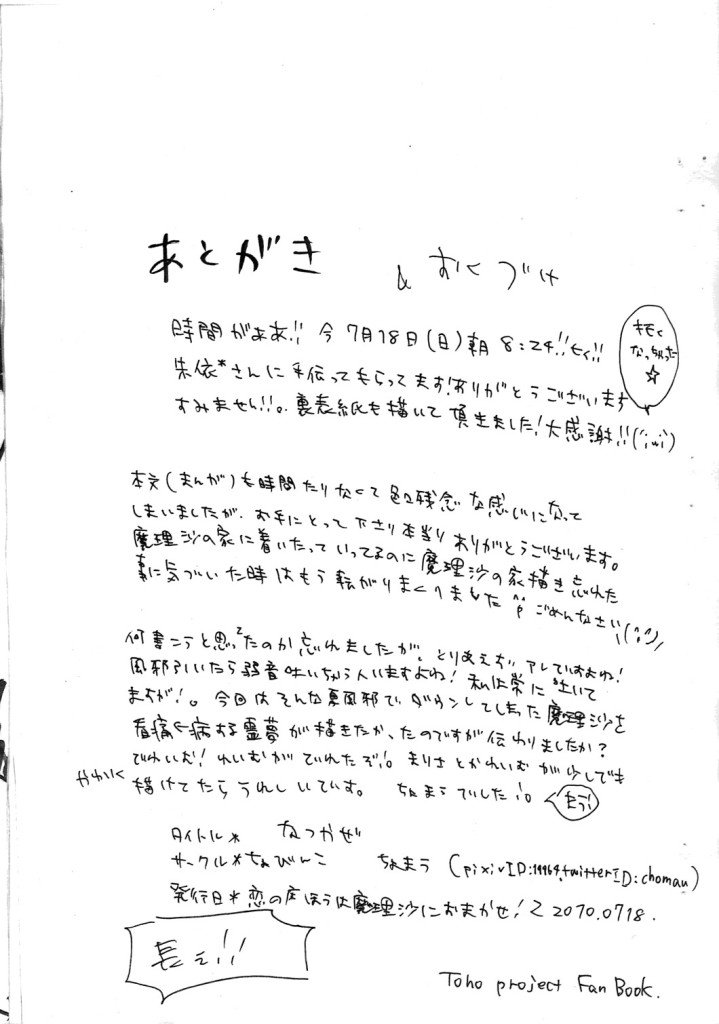 あとがき
& おくづけ
時間がああ!! 今 7月18日(日)朝 8:24!!
朱依*さんに手伝ってもらってます!ありがとうございます
すみません!!。裏表紙も描いて頂きました!大感謝!!
なっちゃった☆
本文(まんが)も時間たりなくて色々残念な感じになって
しまいましたが、お手にとって下さり本当にありがとうございます。
魔理沙の家に着いたっていってるのに魔理沙の家描き忘れた
事に気づいた時はもう転がりまくりました ごめんなさい
何書こうと思ってたのか忘れましたが、とりあえず、アレですよね!
風邪引いたら弱音吐いちゃう人いますよね! 私は常に吐いて
ますが!。今回はそんな夏風邪でダウンしてしまった魔理沙を
看病する霊夢が描きたかったのですが伝わりましたか?
でれいむ!れいむがでれたぞ!。まりさとかれいむが少しでも
かわいく描けてたらうれしいです。 ちょまうでした!。
タイトル* なつかぜ
サークル*ちょびんこ ちょまう (pixivID:19964,twitterID:chomau)
発行日* 恋の魔ほうは魔理沙におまかせ!2 2010.0718.
長え!!
Toho project Fan Book.